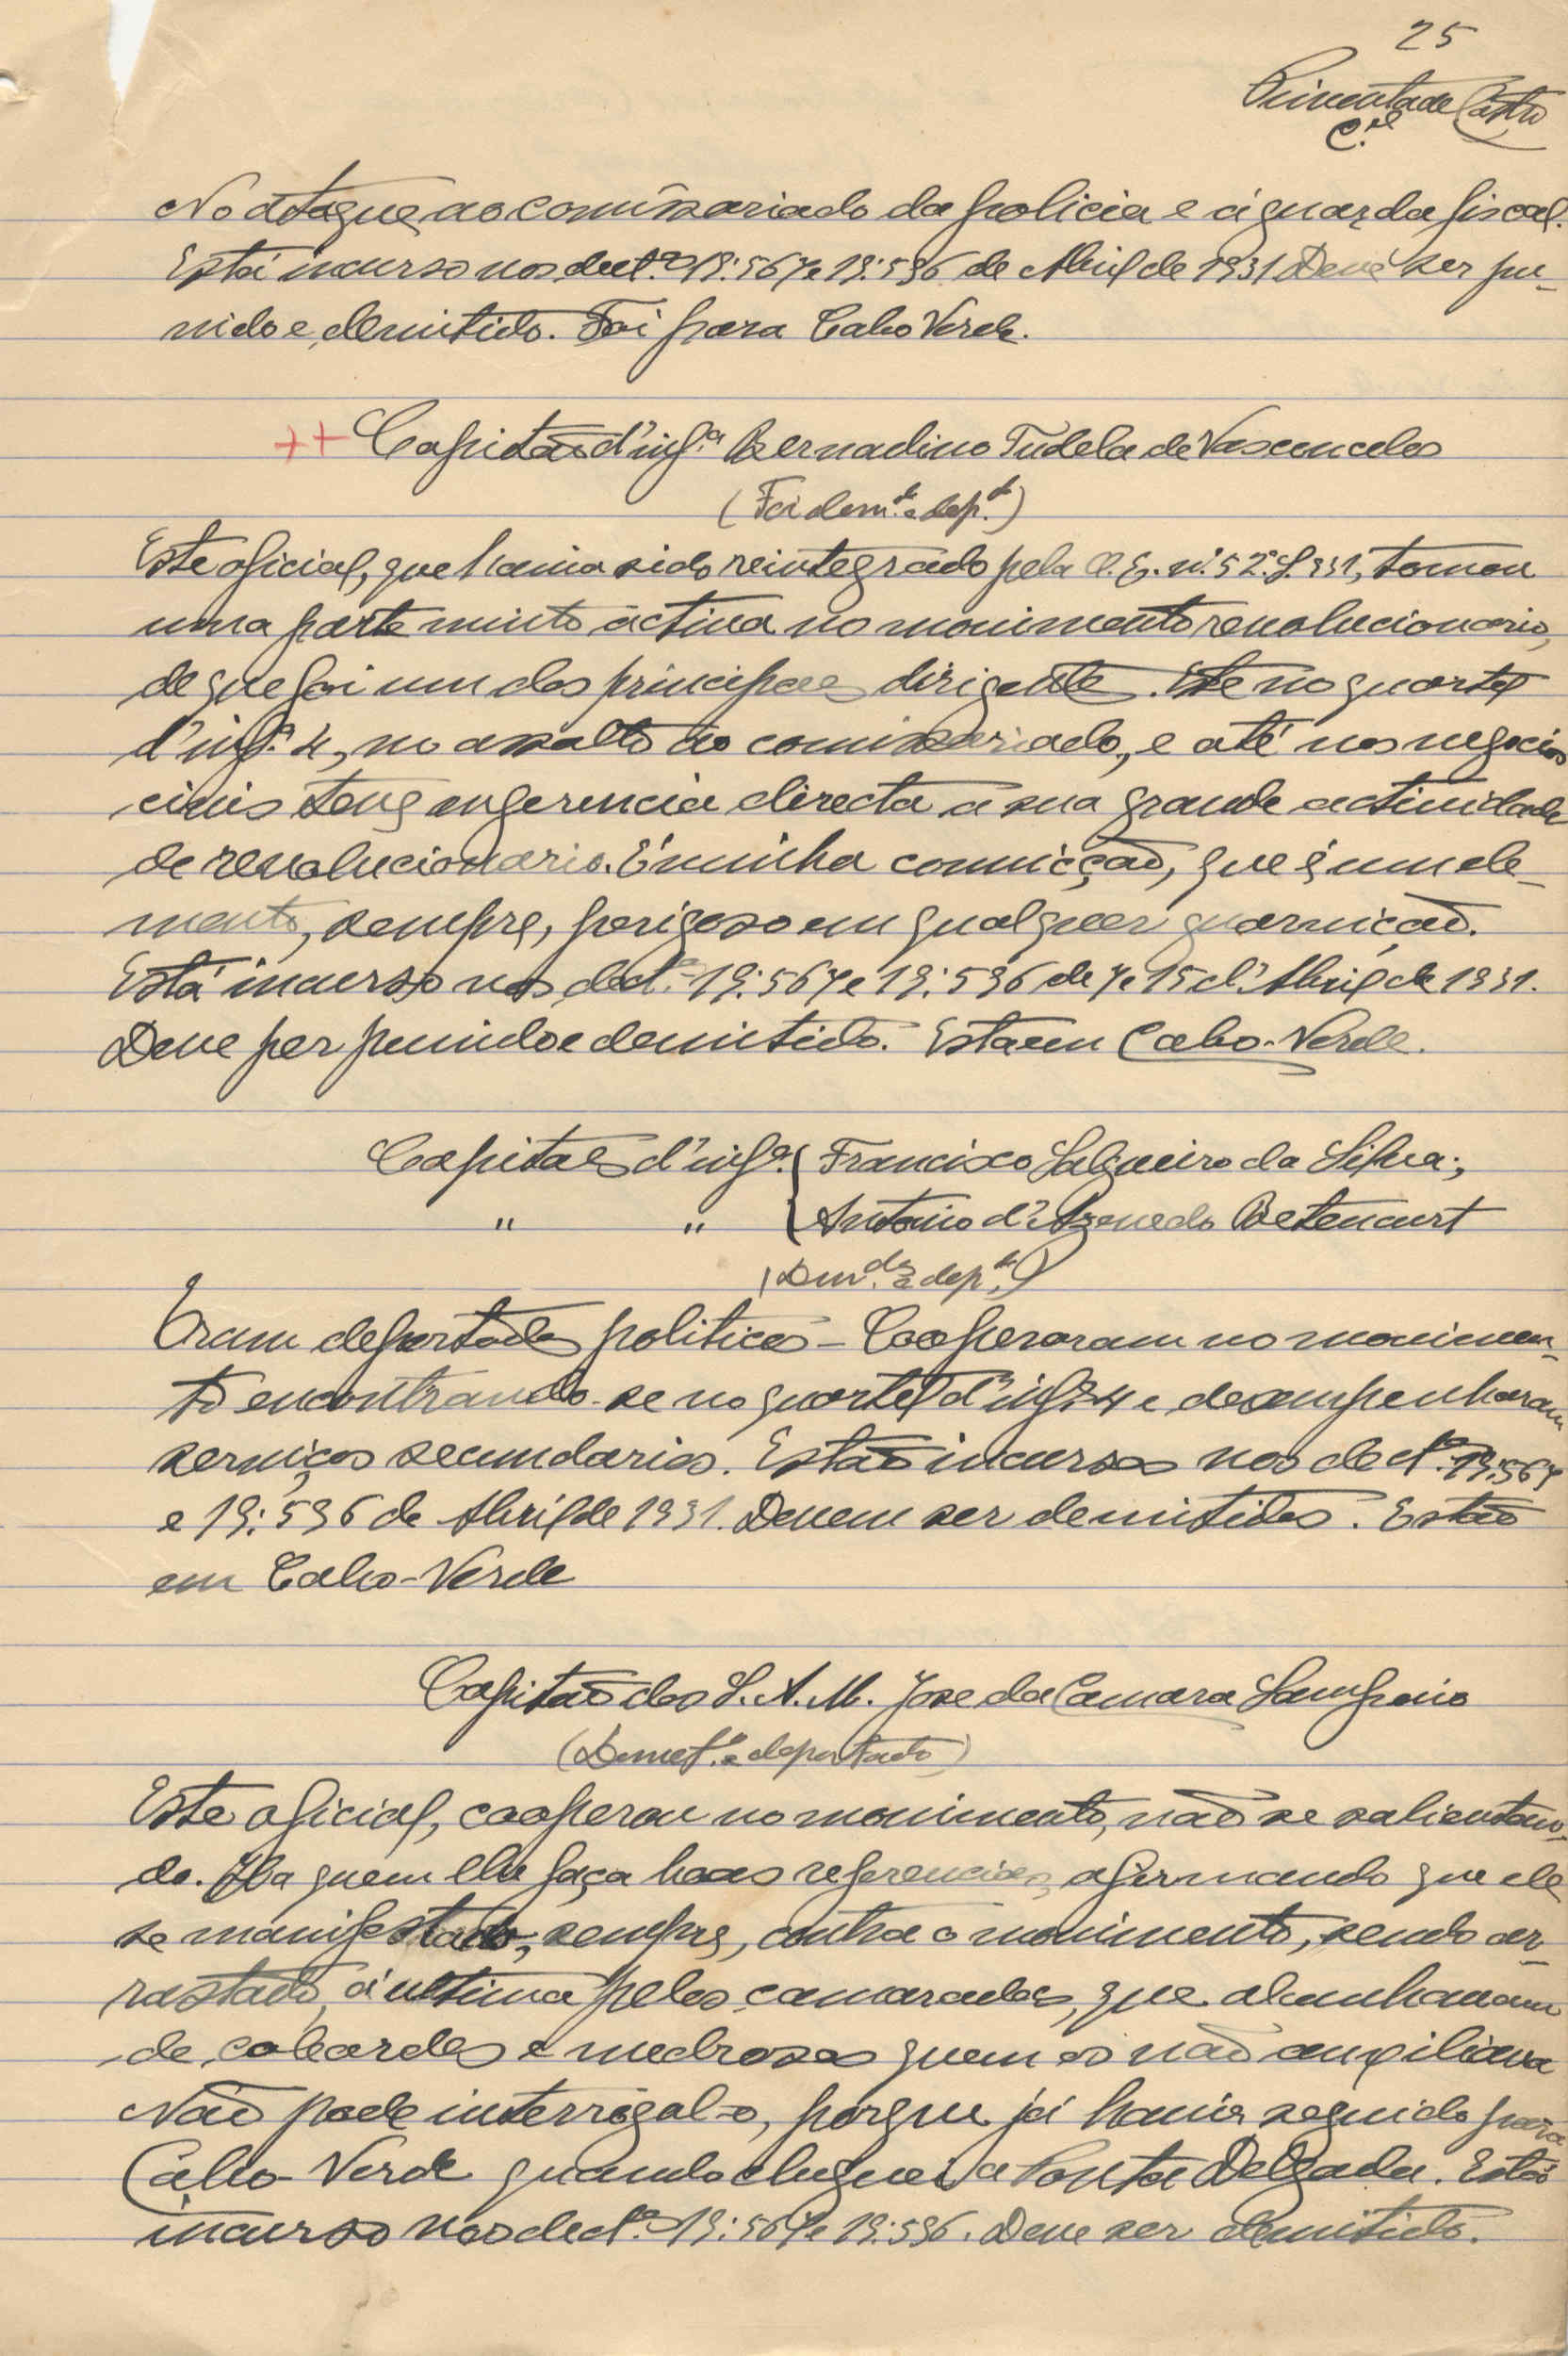 25
Pimenta de Castro
C.el
No ataque ao comissariado da policia e á guarda fiscal.
Está incurso nos dect.os 19:567 e 19:596 de Abril de 1931 Deve ser pu-
nido e demitido. Foi para Cabo Verde.
++ Capitão d'inf.a Bernadino Tudela de Vasconcelos
(Foi dem.do e dep.do)
Este oficial, que havia sido reintegrado pela O. E. n.º 5 2.ª S. 931, tomou
uma parte muito activa no movimento revolucionario,
de que foi um dos principaes dirigente. Este no quartel
d'inf.a 4, no assalto ao comissariado, e até nos negocios
civis teve ingerencia directa a sua grande actividade
de revolucionario. É minha convicção, que é um ele-
mento, sempre, perigoso em qualquer guarnição.
Está incurso nos dect.os 19:567 e 19:596 de 7 e 15 d'Abril de 1931.
Deve per punido e demitido. Esta em Cabo-Verde.
Capitaes d'inf.a { Francisco Salgueiro da Silva;
" " { Antonio d'Azevedo Betencurt
(Dem.dos e dep.dos)
Eram deportados politicos - Cooperaram no movimen-
to encontrando-se no quartel d'inf.a 4 e desempenharam
serviços secundarios. Estão incursos nos dect.os 19:567
e 19:596 de Abril de 1931. Devem ser demitidos. Estão
em Cabo-Verde
Capitão do S. A. M. Jose da Camara Sampaio
(Demet.do e deportado)
Este oficial, cooperou no movimento, não se salientan-
do. Ha quem lhe faça boas referencias, afirmando que ele
se manifestado, sempre, contra o movimento, sendo ar-
rastado, á ultima pelos camaradas, que alcunhavam
de cobardes e medrosos quem os não auxiliava
Não pode interrogal-o, porque já havia seguido para
Cabo-Verde quando cheguei a Ponta Delgada. Está
incurso nos dect.os 19:567 e 19:596. Deve ser demitido.